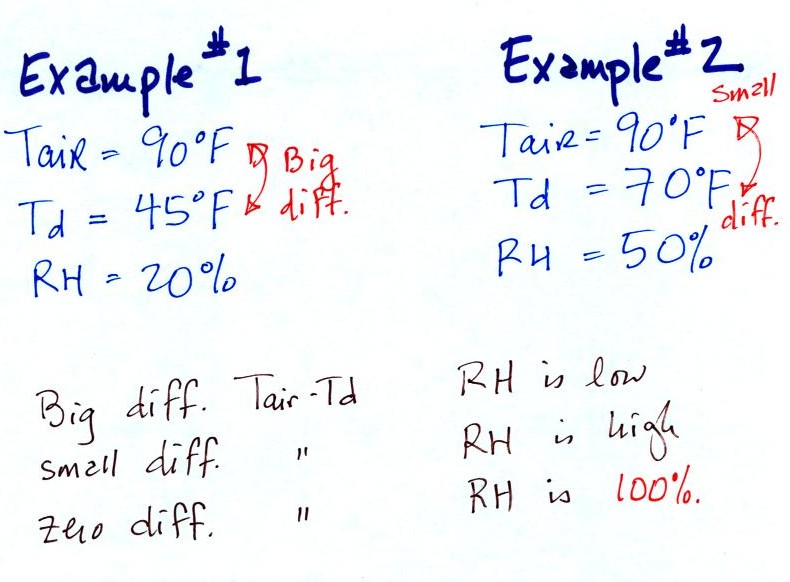 Example #1
Tair = 90°F
Td = 45°F
Big
diff.
RH = 20%
Example #2
Small
Tair = 90°F
Td = 70°F
diff.
RH = 50%
Big diff. Tair-Td RH is low
small diff. " RH is high
zero diff. " RH is 100%.